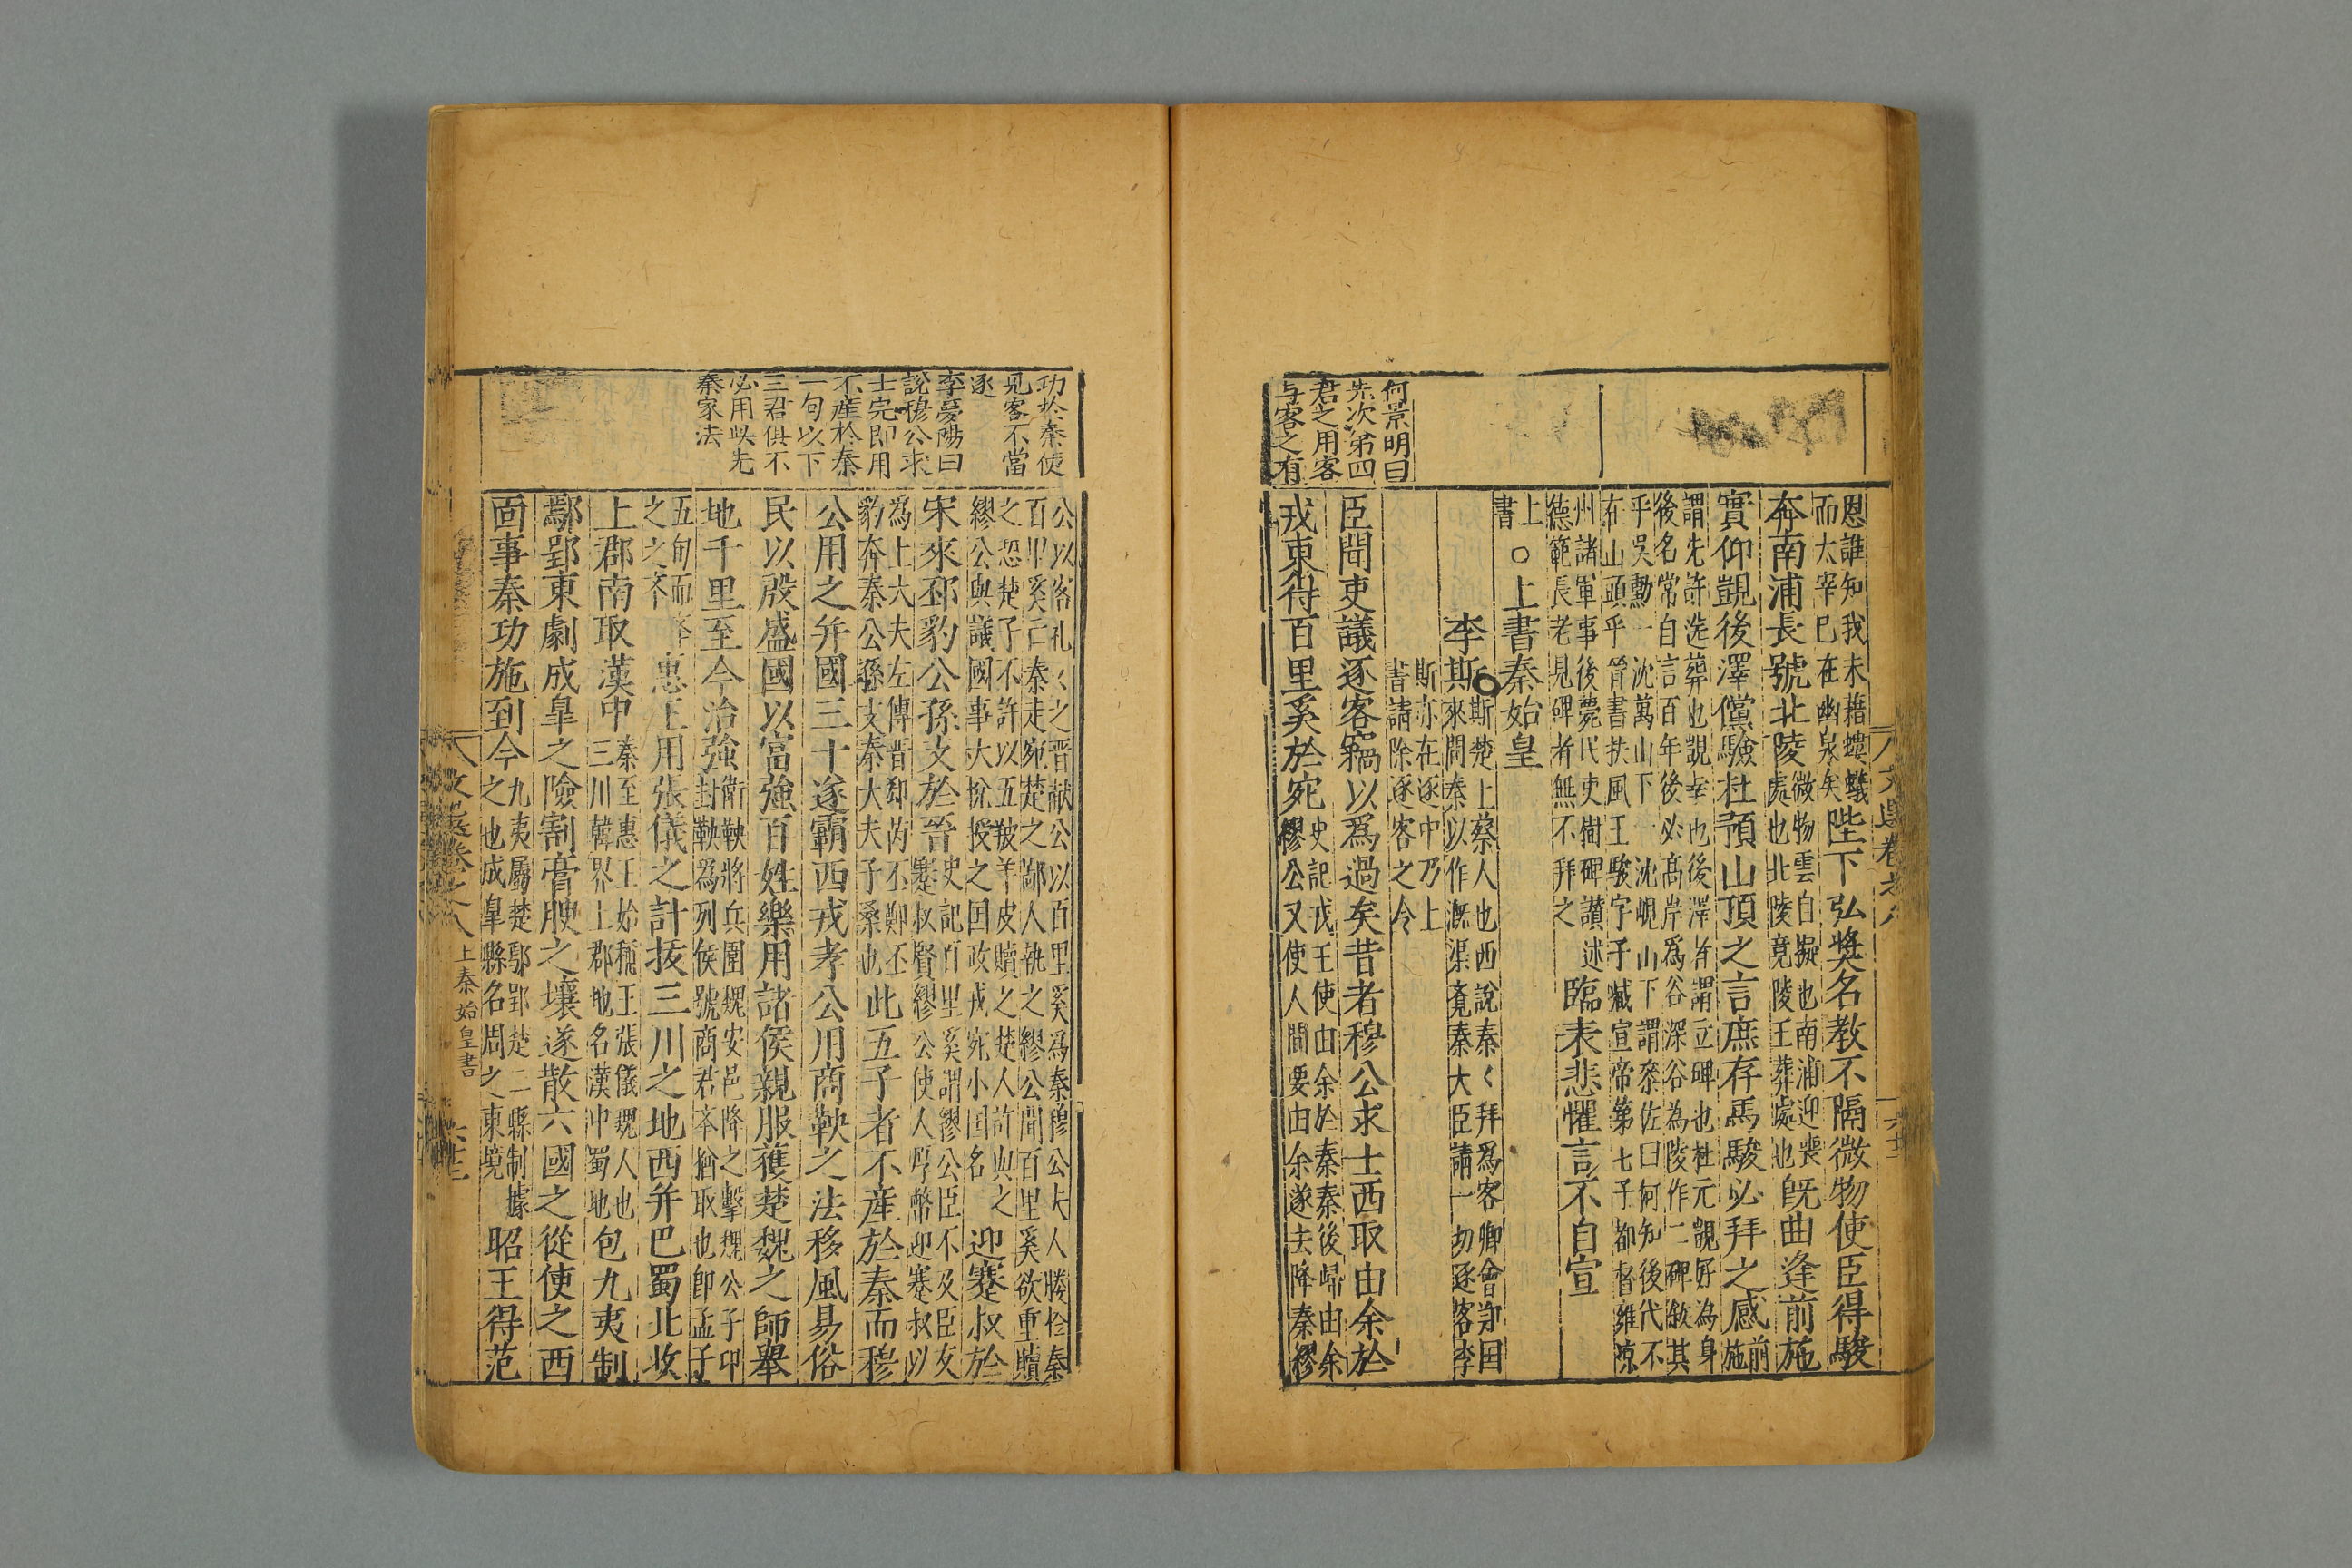 文選卷之八
何景明曰
先次第四
君之用客
与客之有
恩誰知我未藉螻蟻
而太宰巳在幽泉矣
陛下弘奬名教不隔微物使臣得駿
奔南浦長號北陵
微物雲自擬也南浦迎喪
處也北陵竟陵王葬處也
旣曲逢前施
實仰覬後澤儻驗杜預山頂之言庶存馬駿必拜之感
前
施
謂先許造葬也覬幸也後澤旨謂立碑也杜元覬好為身
後名常自言百年後必髙岸爲谷深谷為陵作二碑敘其
乎吳勳一沈萬山下一沈峴山下謂叅佐曰何知後代不
在山頭乎晉書扶風王駿字子臧宣帝第七子都督雍凉
州諸軍事後薨民吏樹碑讃述
德範長老見碑者無不拜之
臨表悲懼言不自宣
上
書
○上書秦始皇
李斯
斯楚上蔡人也西說秦〻拜爲客卿會国
來間秦以作漑渠覔秦大臣請一切逐客李
斯亦在逐中乃上
書請除逐客之令
臣聞吏議逐客竊以爲過矣昔者穆公求士西取由余於
戎東得百里奚於宛
史記戎王使由余於秦秦後歸由余
繆公又使人間要由余遂去降秦繆
功於秦使
見客不當
逐
李夢陽曰
說穆公求
士完即用
不産於秦
一句以下
三君俱不
必用此先
秦家法
公以客礼〻之晋献公以百里奚爲秦穆公夫人媵於秦
百里奚亡秦走宛楚之鄙人執之繆公聞百里奚欲重贖
之恐楚子不許以五羖羊皮贖之楚人許與之
繆公與議國事大恱授之囯政戎宛小国名
迎蹇叔於
宋來邳豹公孫支於晉
史記百里奚謂繆公臣不及臣友
蹇叔賢繆公使人厚幣迎蹇叔以
爲上大夫左傳晋郤芮丕鄭丕
豹奔秦公孫支秦大夫子桑也
此五子者不産於秦而穆
公用之并國三十遂霸西戎孝公用商鞅之法移風易俗
民以殷盛國以富強百姓樂用諸侯親服獲楚魏之師舉
地千里至今治強
衛鞅將兵圍魏安邑降之擊魏公子卬
封鞅爲列侯號商君本猶取也卽孟子
五旬而
之之本
惠王用張儀之計拔三川之地西并巴蜀北收
上郡南取漢中
秦至惠王始稱王張儀魏人也
三川韓界上郡地名漢中蜀地
包九夷制
鄢郢東劇成臯之險割膏腴之壤遂散六國之從使之西
面事秦功施到今
九夷屬楚鄢郢楚二縣制據
之也成臯縣名周之東境
昭王得范
文選卷之八
上秦始皇書